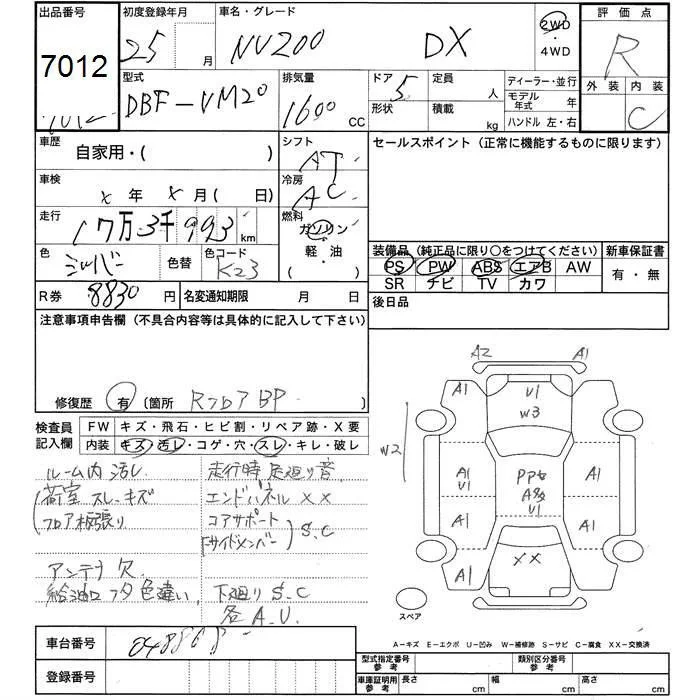 出品番号 初度登録年月 車名・グレード 2WD ・4WD 評価点
7012 25 月 NV200 DX R
型式 排気量 ドア 5 定員 人 ディーラー・並行 外装 内装
DBF-VM20 1600 CC 形状 積載 kg モデル年式 年 C
ハンドル 左・右
車歴 自家用・( ) シフト AT セールスポイント (正常に機能するものに限ります)
車検 x 年 x 月( 日) 冷房 AC
走行 17万3千993 km 燃料 ガソリン・軽・油
色 シルバー 色替 色コード K23
装備品 (純正品に限り○をつけてください) 新車保証書
PS PW ABS エアB AW 有・無
SR チビ TV カワ
R券 8830 円 名変通知期限 月 日 後日品
注意事項申告欄 (不具合内容等は具体的に記入して下さい)
修復歴 有 〔箇所 RフロアBP
検査員記入欄 FW キズ・飛石・ヒビ割・リペア跡・X要
内装 キズ・汚レ・コゲ・穴・スレ・キレ・破レ
ルーム内 汚レ 走行時 足廻り音
荷室 スレ・キズ エンドパネル XX
フロア板張り コアサポート
サイドメンバー S.C
アンテナ 欠
給油口フタ色違い 下廻り S.C
各A.U.
A2 A1
A1 U1 A1
W3
W2
A1 U1 PPを A1
U1
A1 A1
XX
A1
スペア
車台番号
登録番号
A-キズ E-エクボ U-凹み W-補修跡 S-サビ C-腐食 XX-交換済
型式指定番号 参考 類別区分番号 参考
車庫証明用 参考 長さ cm 幅 cm 高さ cm